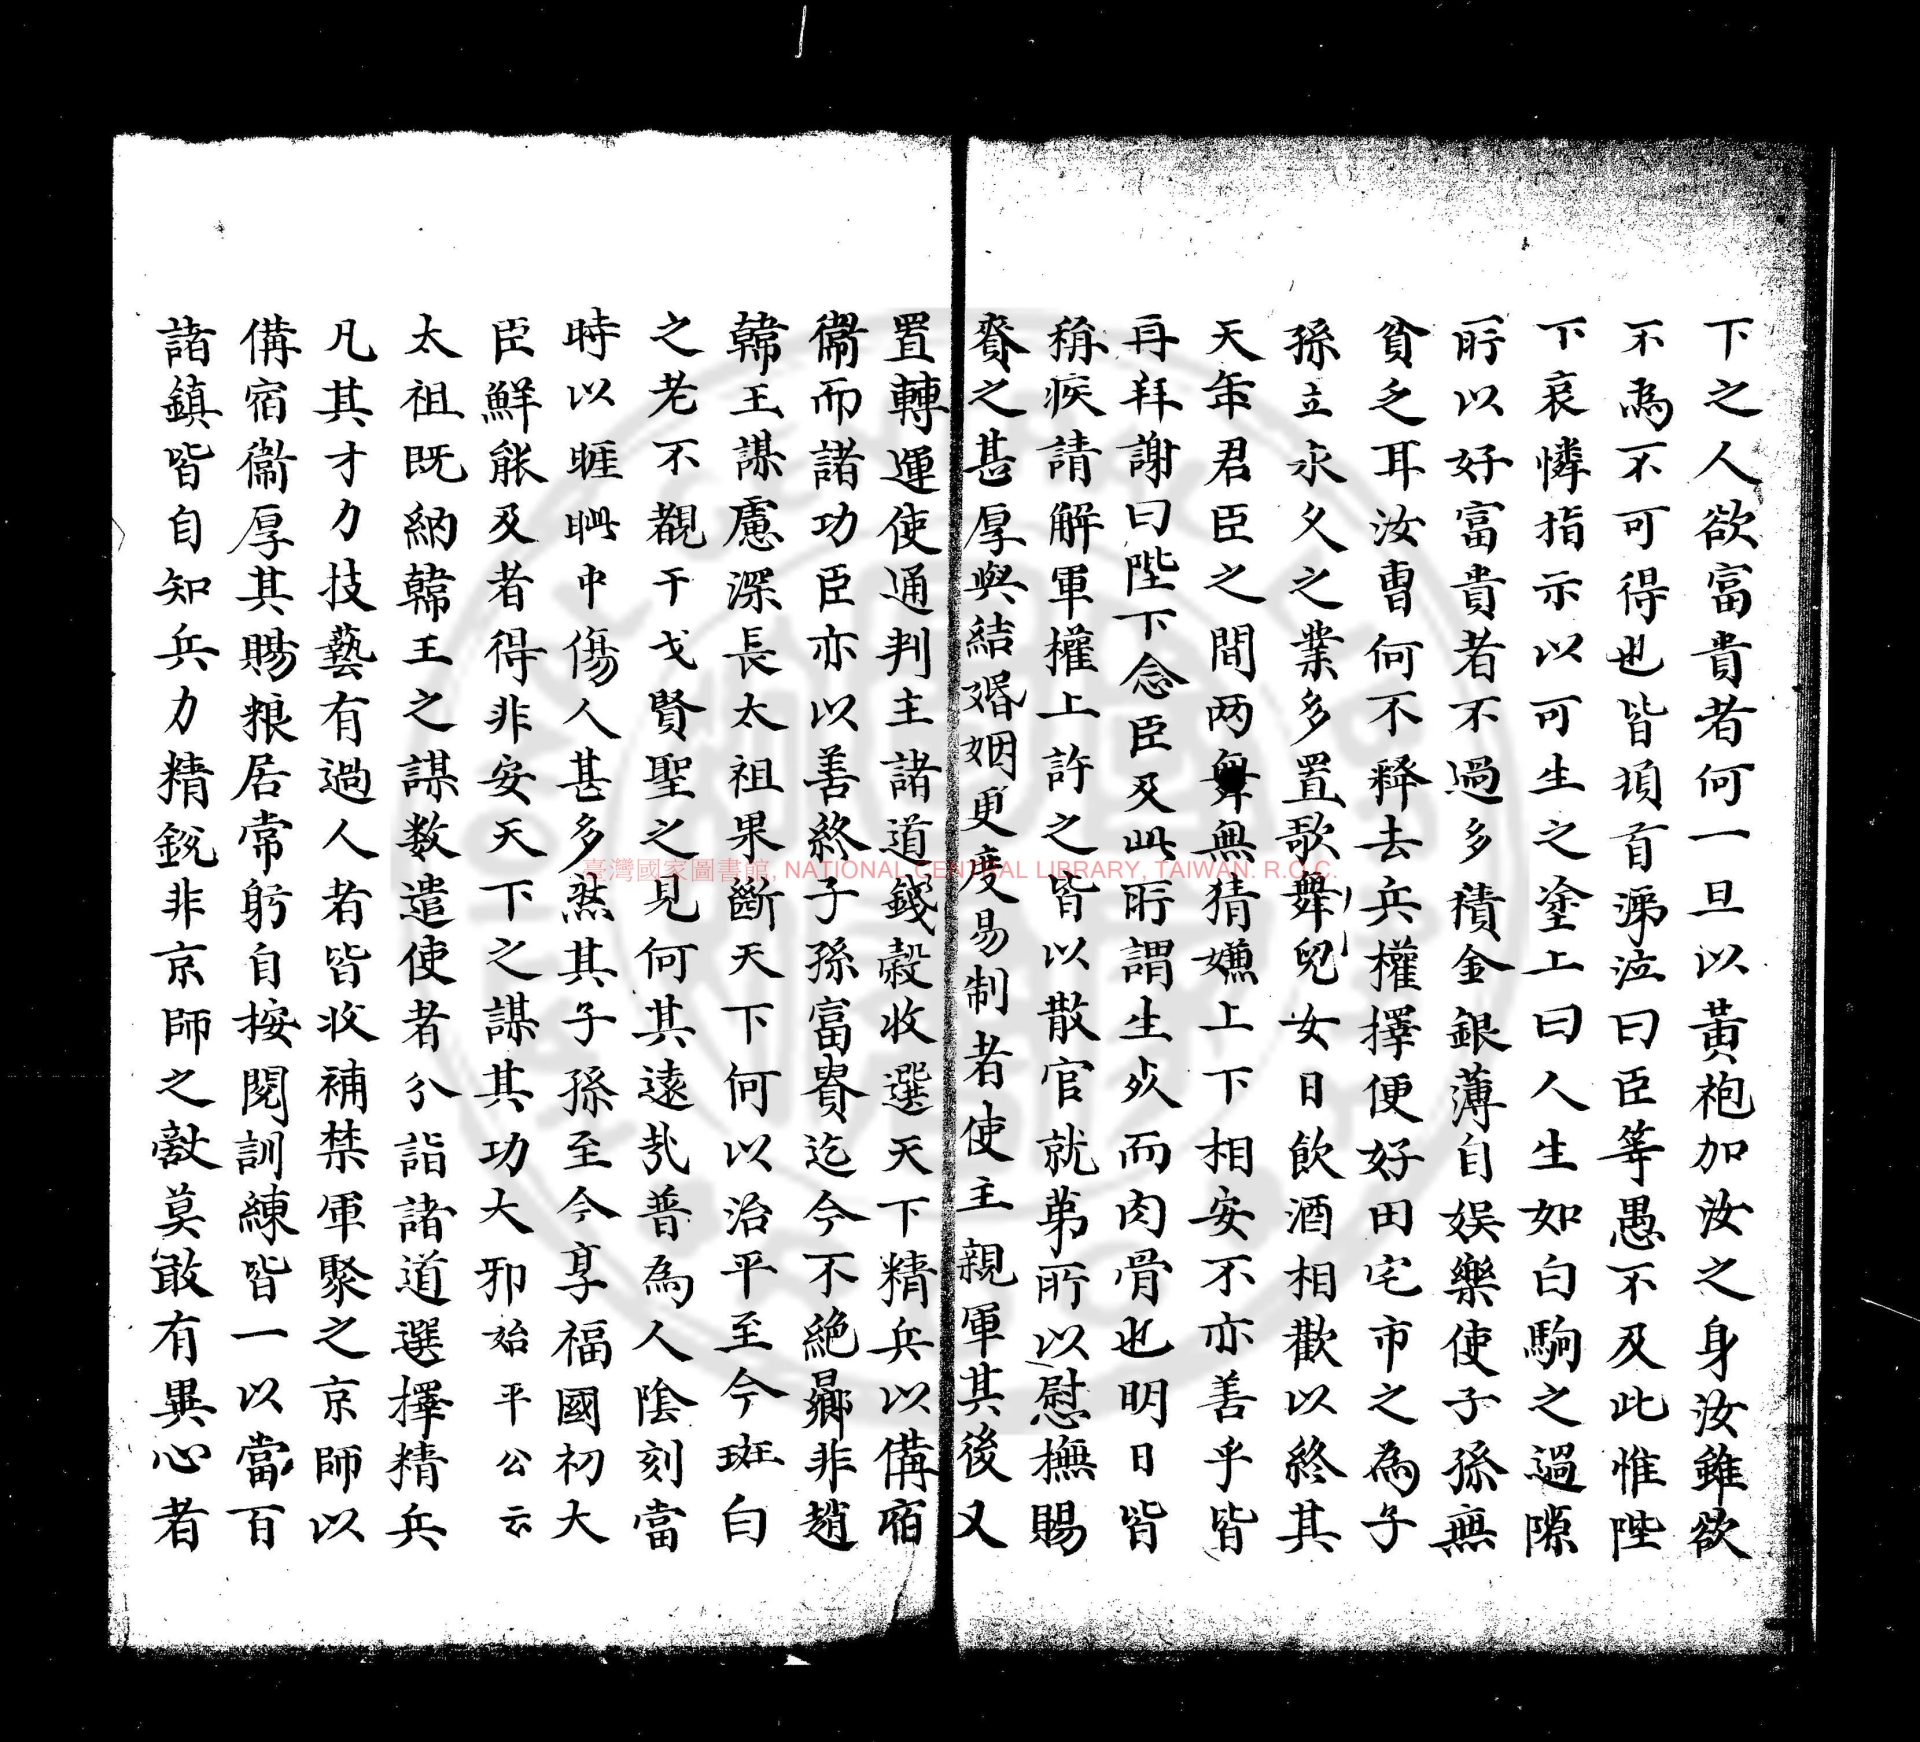 下之人欲富貴者何一旦以黃袍加汝之身汝雖欲
不為不可得也皆頃首涕泣曰臣等愚不及此惟陛
下哀憐指示以可生之塗上曰人生如白駒之過隙
所以好富貴者不過多積金銀薄自娱樂使子孫無
貧乏耳汝曹何不釋去兵權擇便好田宅市之為子
孫立永久之業多置歌舞兒女日飲酒相歡以終其
天年君臣之間两無猜嫌上下相安不亦善乎皆
再拜謝曰陛下念臣及此所謂生死而肉骨也明日皆
稱疾請解軍權上許之皆以散官就第所以慰撫賜
賚之甚厚與結婚姻更度易制者使主親軍其後又
置轉運使通判主諸道錢穀收選天下精兵以備宿
衞而諸功臣亦以善終子孫富貴迄今不絕曏非趙
韓王謀慮深長太祖果斷天下何以治平至今班白
之老不覩干戈賢聖之見何其遠哉普為人陰刻當
時以睚眦中傷人甚多然其子孫至今享福國初大
臣鮮能及者得非安天下之謀其功大邪始平公云
太祖既納韓王之謀数遣使者分詣諸道選擇精兵
凡其才力技藝有過人者皆收補禁軍聚之京師以
備宿衞厚其賜粮居常躬自按閱訓練皆一以當百
諸鎮皆自知兵力精銳非京師之敵莫敢有異心者
臺灣國家圖書館, NATIONAL CENTRAL LIBRARY, TAIWAN. R.O.C.